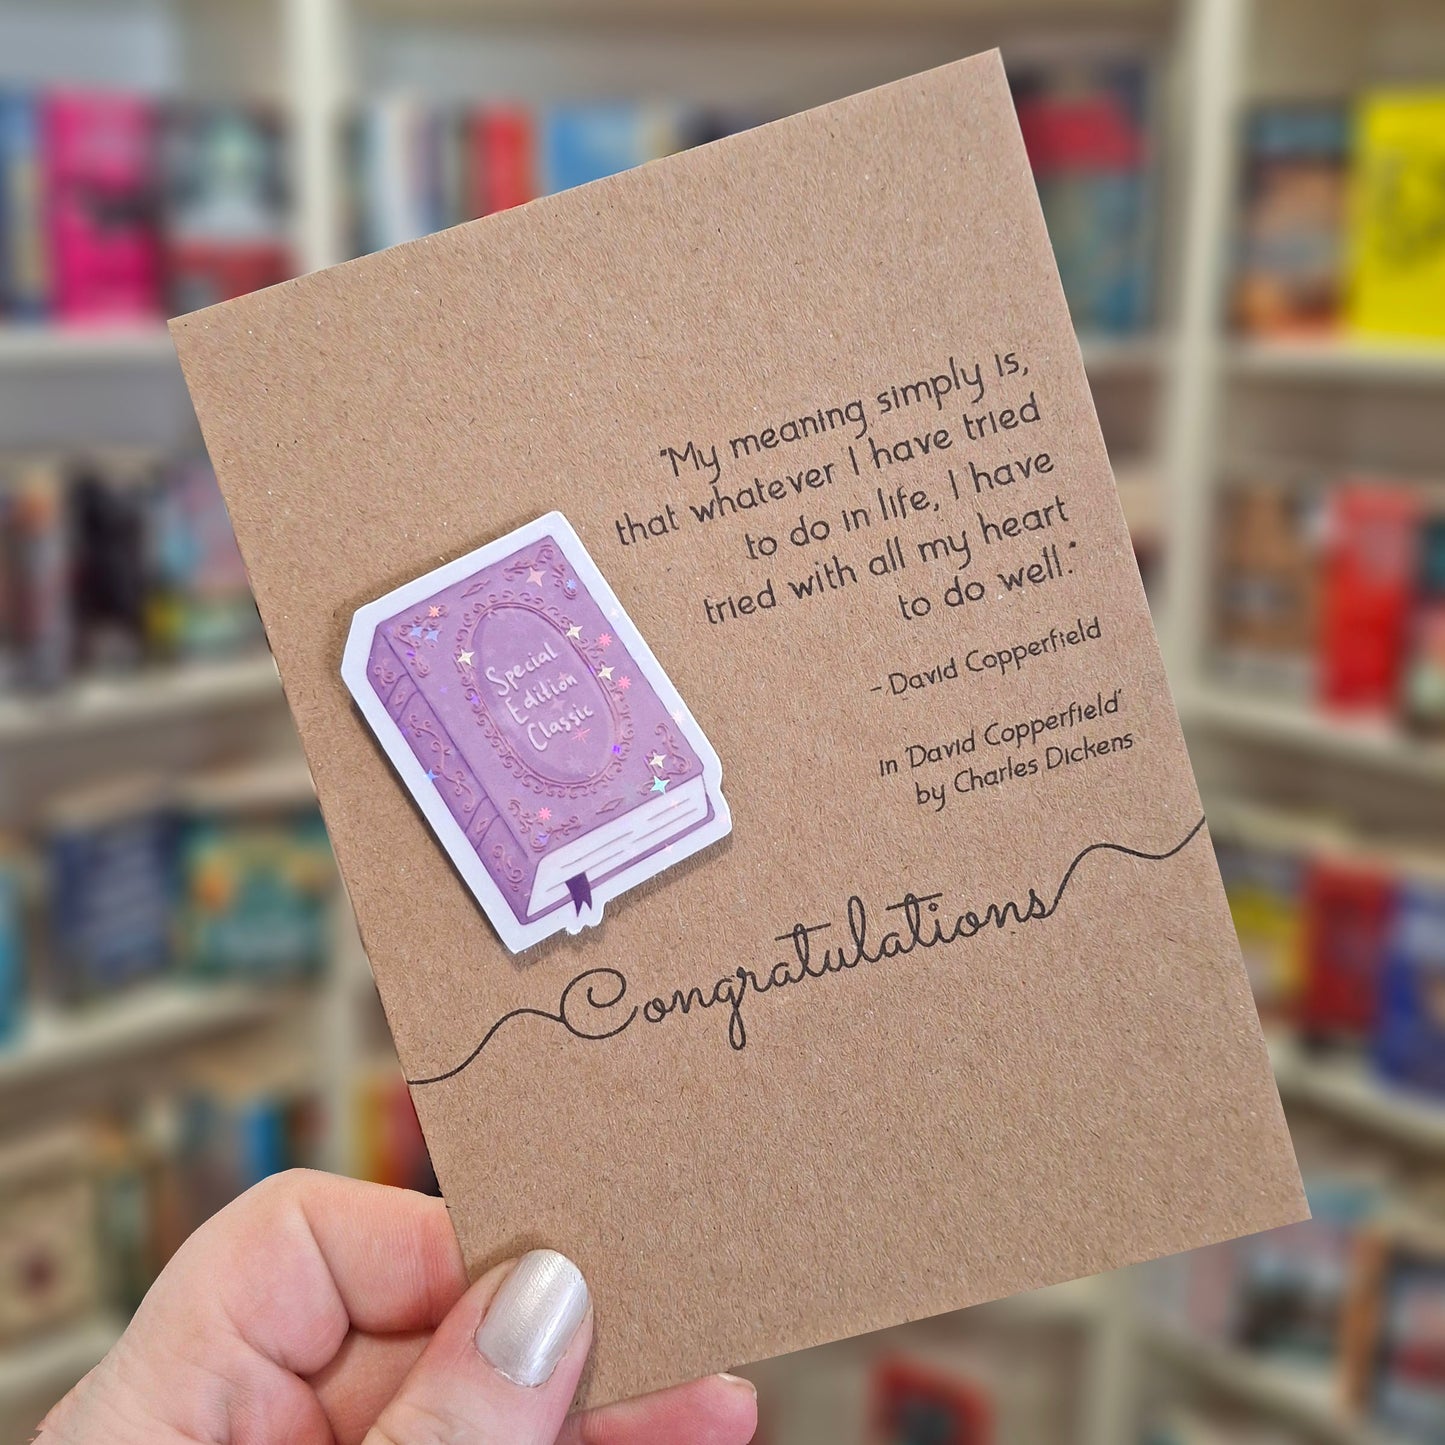 "My meaning simply is,
that whatever I have tried
to do in life, I have
tried with all my heart
to do well."
- David Copperfield
in 'David Copperfield'
by Charles Dickens
Special
Edition
Classic
Congratulations